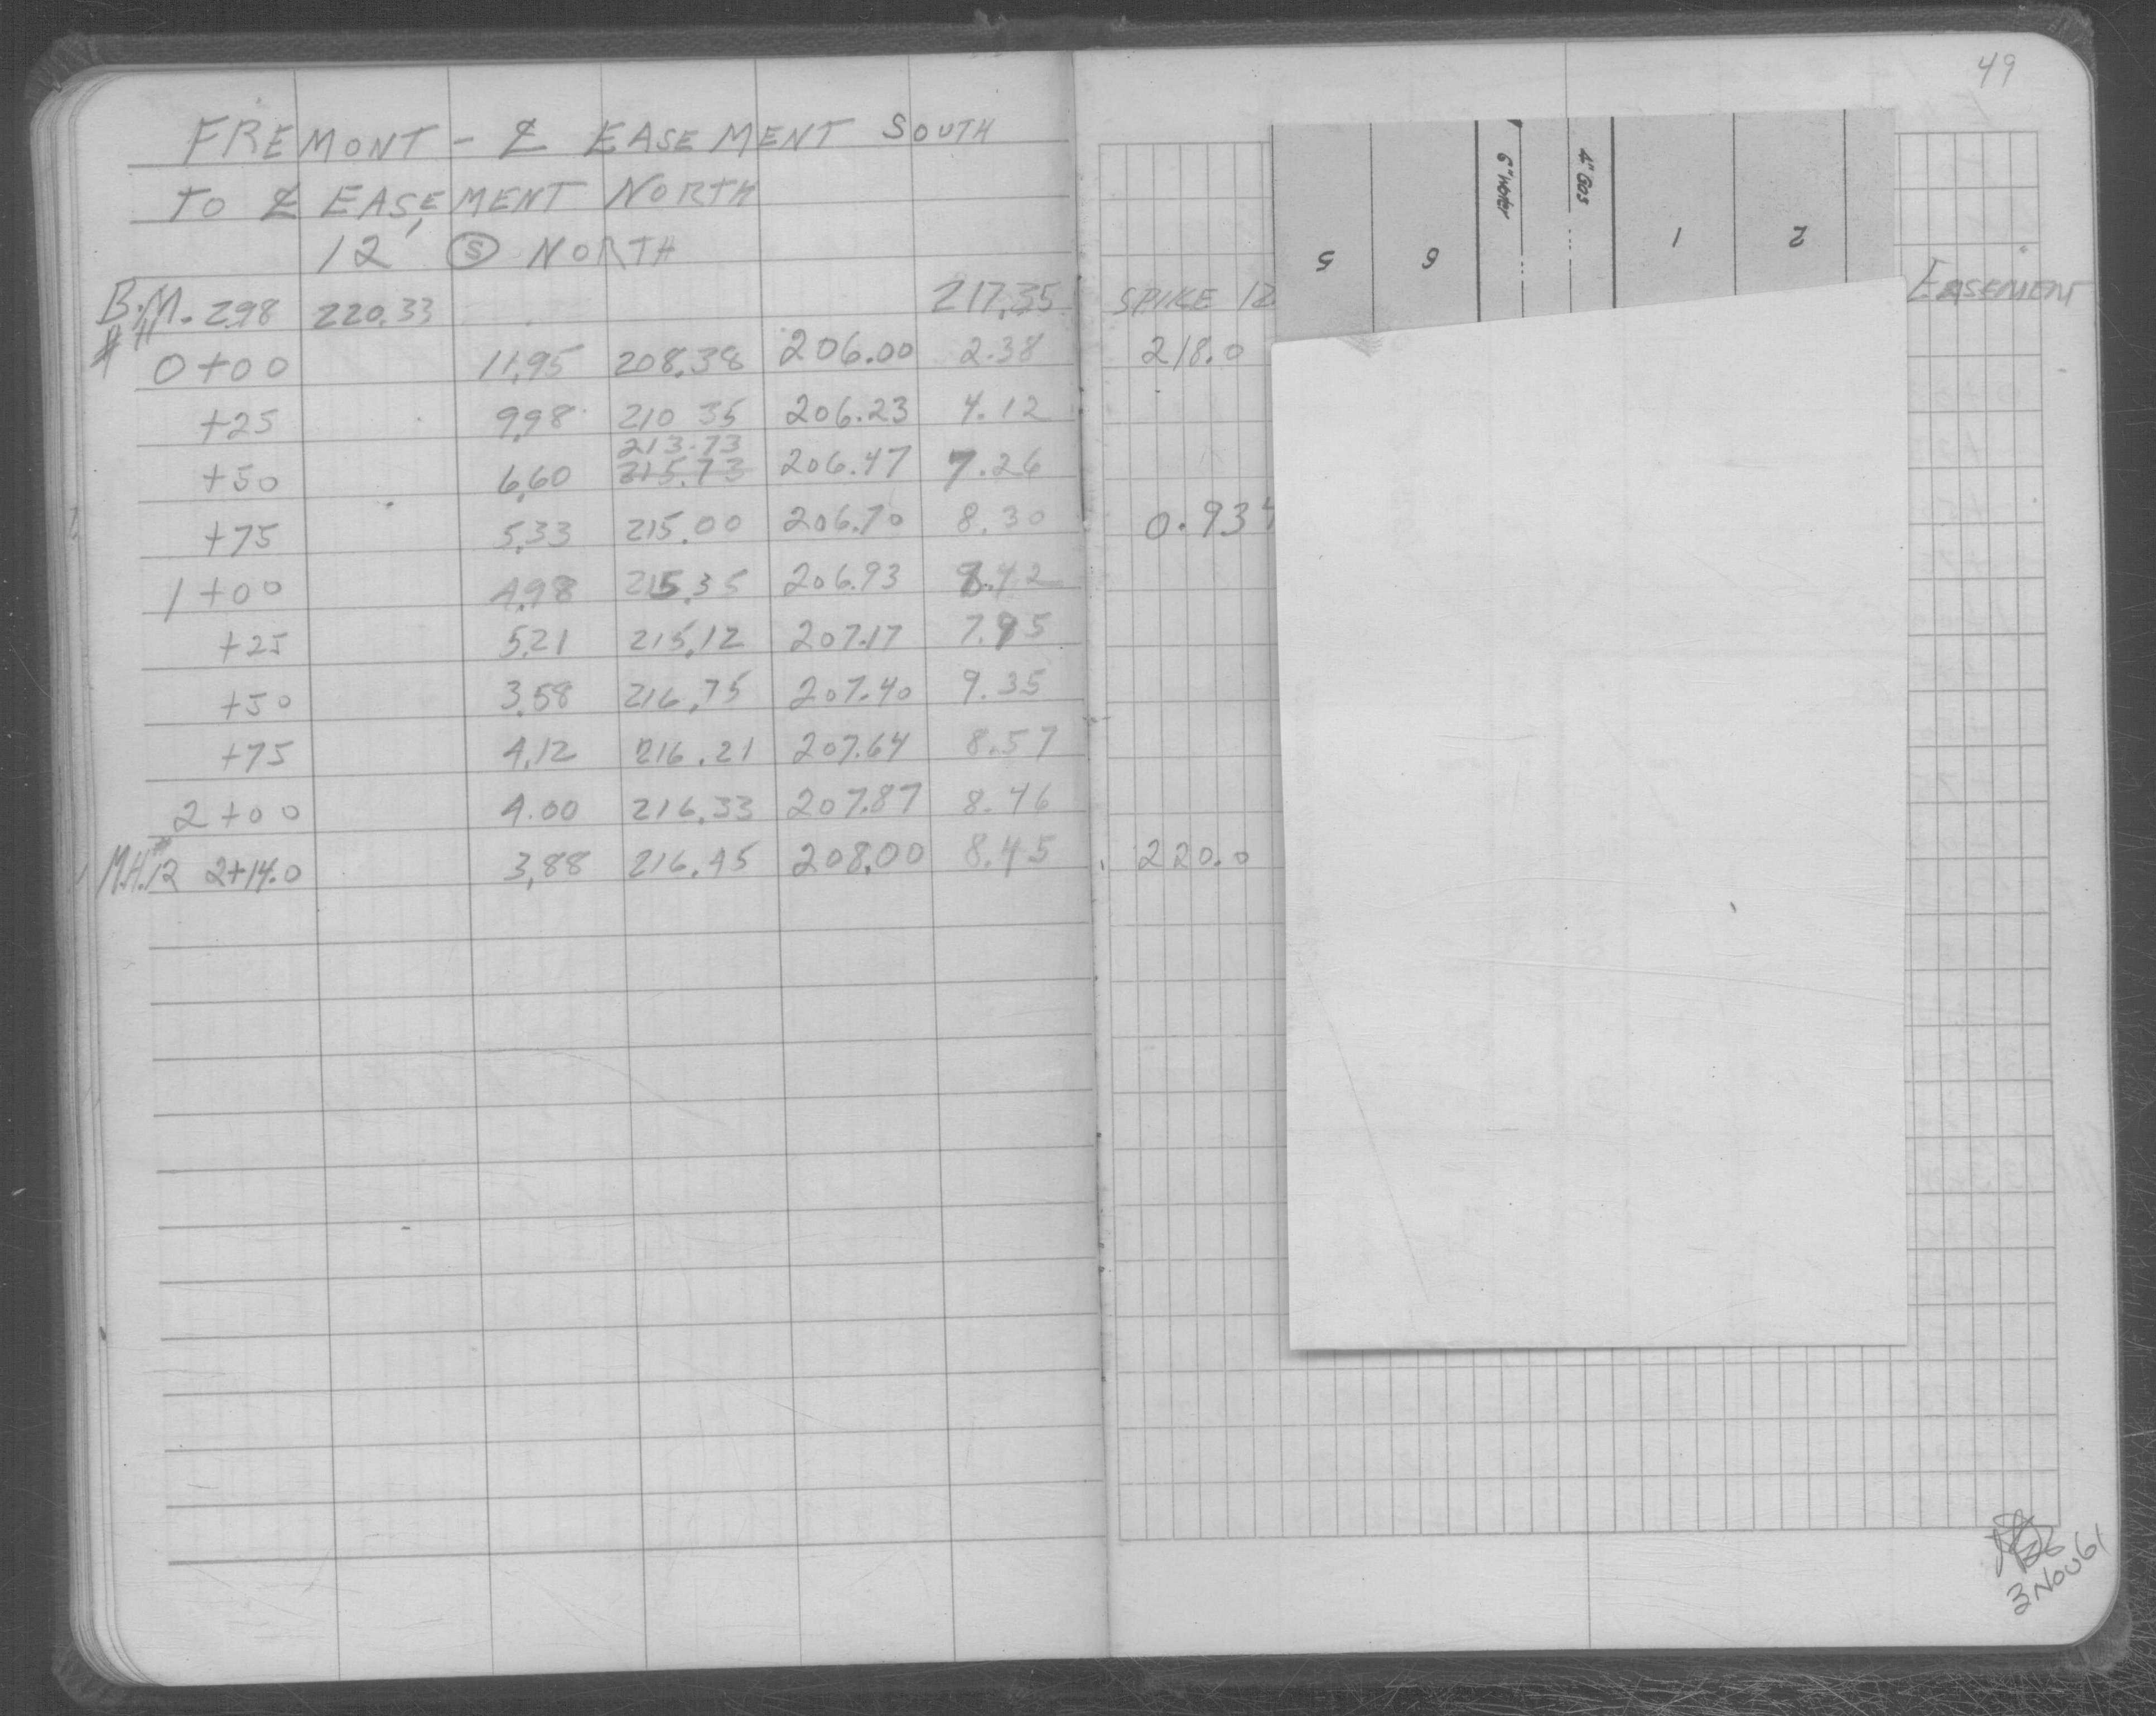 FREMONT - ℄ EASEMENT SOUTH
TO ℄ EASEMENT NORTH
12' Ⓢ NORTH
B.M. 2.98 220.33 217.35
0+00 11.95 208.38 206.00 2.38
+25 9.98 210.35 206.23 4.12
213.73
+50 6.60 215.73 206.47 7.26
+75 5.33 215.00 206.70 8.30
1+00 4.98 215.35 206.93 8.42
+25 5.21 215.12 207.17 7.95
+50 3.58 216.75 207.40 9.35
+75 4.12 216.21 207.64 8.57
2+00 4.00 216.33 207.87 8.46
M.H.#12 2+14.0 3.88 216.45 208.00 8.45
49
6" Water
4" Gas
5 6 1 2
SPIKE 12
EASEMENT
218.0
0.934
220.0
3 NOV 61